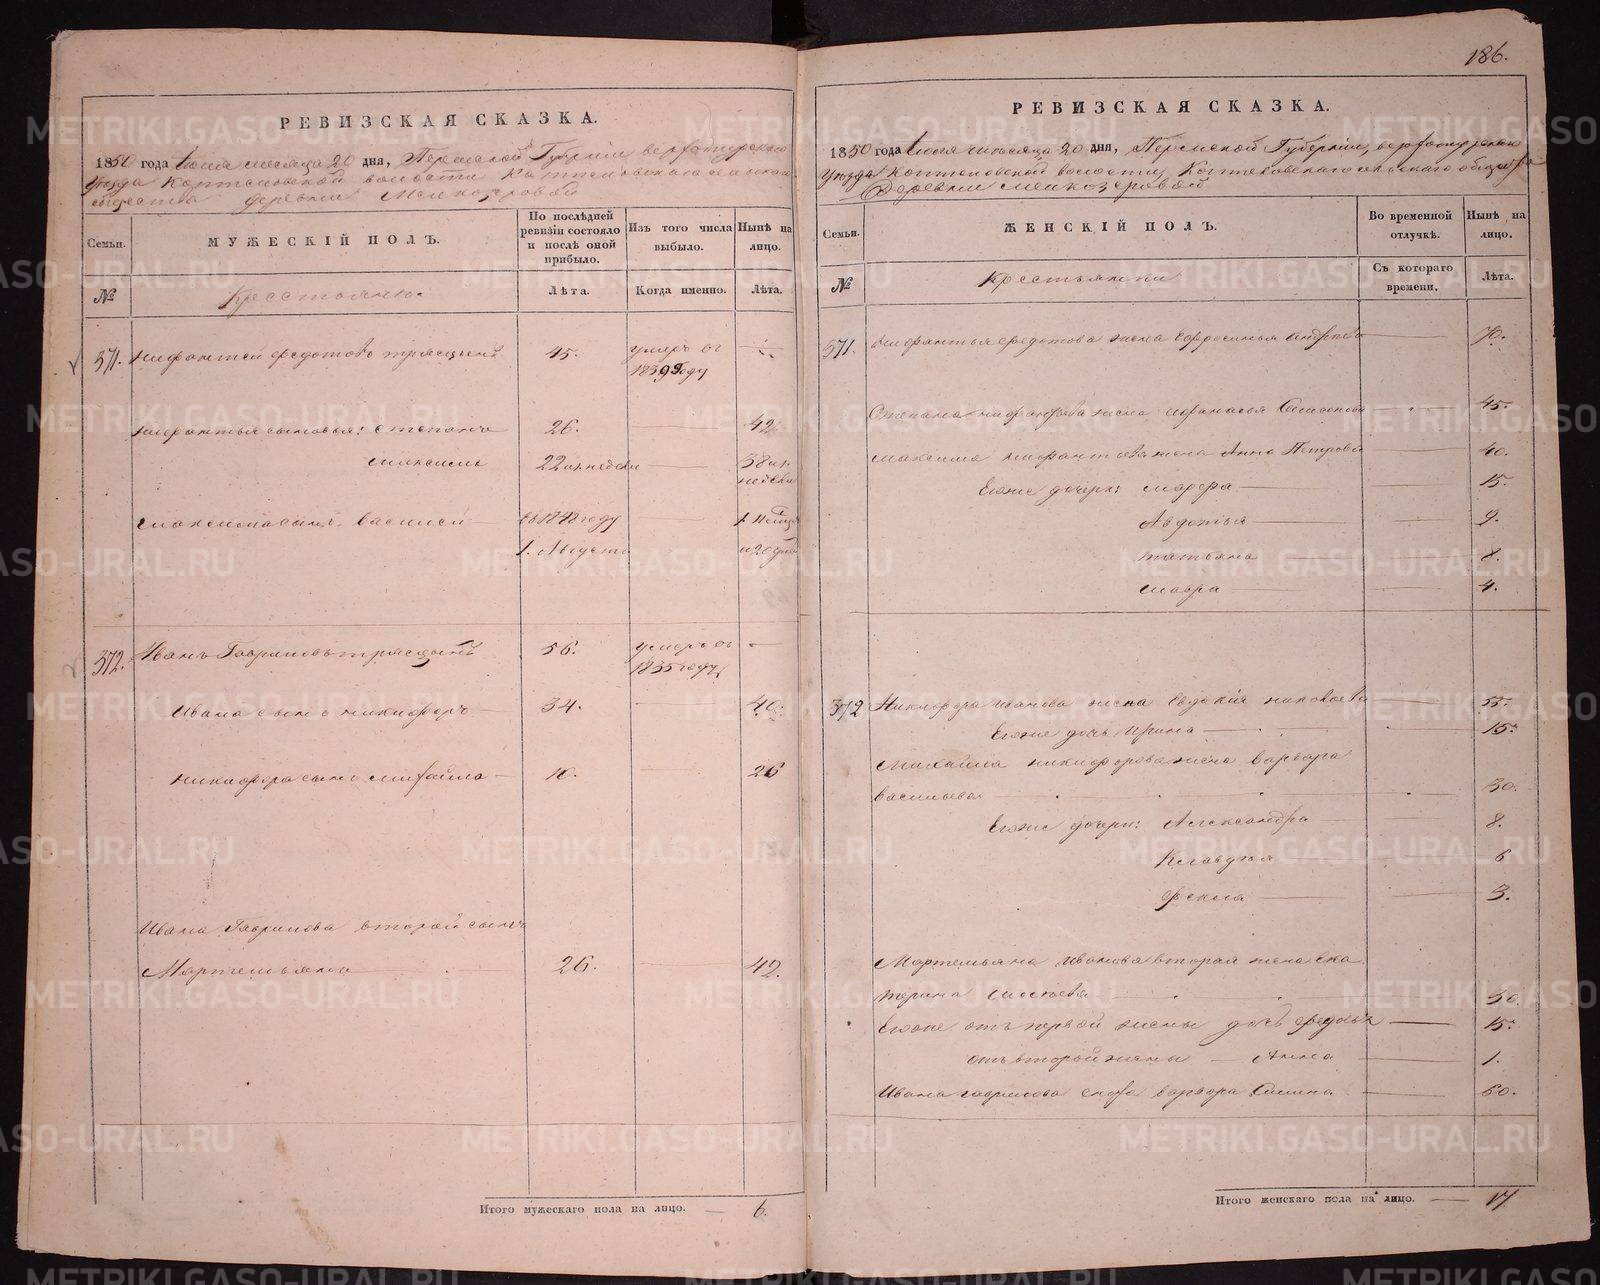 186.
РЕВИЗСКАЯ СКАЗКА.
1850 года Июня месяца 20 дня, Пермской Губернiи верхотурскаго
Уезда Коптеловской волости Коптеловскаго сельскаго
общества деревни Мелкозеровой
Семьи.
МУЖЕСКІЙ ПОЛЪ.
По послѣдней ревизіи состояло и послѣ оной прибыло.
Изъ того числа выбыло.
Нынѣ на лицо.
№
Крестьяне.
Лѣта.
Когда именно.
Лѣта.
371. Нифантей Федотовъ трясцынъ 45. умеръ въ
1839 году
Нифантья сыновья: Степанъ 26. 42
Максимъ 22 из недели 38 из
недели
Максима сынъ Василiй в 1848 году 1.
1. Августа и 20 дня
372. Иванъ Гавриловъ трясцынъ 56. умеръ въ
1835 году
Ивана сынъ никифоръ 34.
никифора сынъ михайло 10. 26
Ивана Гаврилова второй сынъ
Мартемьянъ 26. 42.
Итого мужескаго пола на лицо. 6.
РЕВИЗСКАЯ СКАЗКА.
1850 года Июня месяца 20 дня, Пермской Губернiи, верхотурскаго
Уезда Коптеловской волости Коптеловскаго сельскаго общества
Деревни мелкозеровой
Семьи.
ЖЕНСКІЙ ПОЛЪ.
Во временной отлучкѣ.
Нынѣ на лицо.
№
Крестьянки
Съ котораго времени.
Лѣта.
371. Нифантья федотова жена Ефросинья андреева 70.
Степана нифантьева жена Афанасья Самсонова 45.
максима нифантьева жена Анна Петрова 40.
Егоже дочери: марфа 15.
Авдотья 9.
татьяна 8.
мавра 4.
372 Никифора иванова жена Евдокiя 55.
Егоже дочь ирина 15.
Михайла никифорова жена варвара
васильева 30.
Егоже дочери: Александра 8.
Клавдия 6
фекла 3.
Мартемьяна иванова вторая жена ека
терина 30.
Егоже отъ первой жены дочь федосья 15.
отъ второй жены Анна 1.
Ивана гаврилова сноха варвара 60.
Итого женскаго пола на лицо. 17.
METRIKI.GASO-URAL.RU